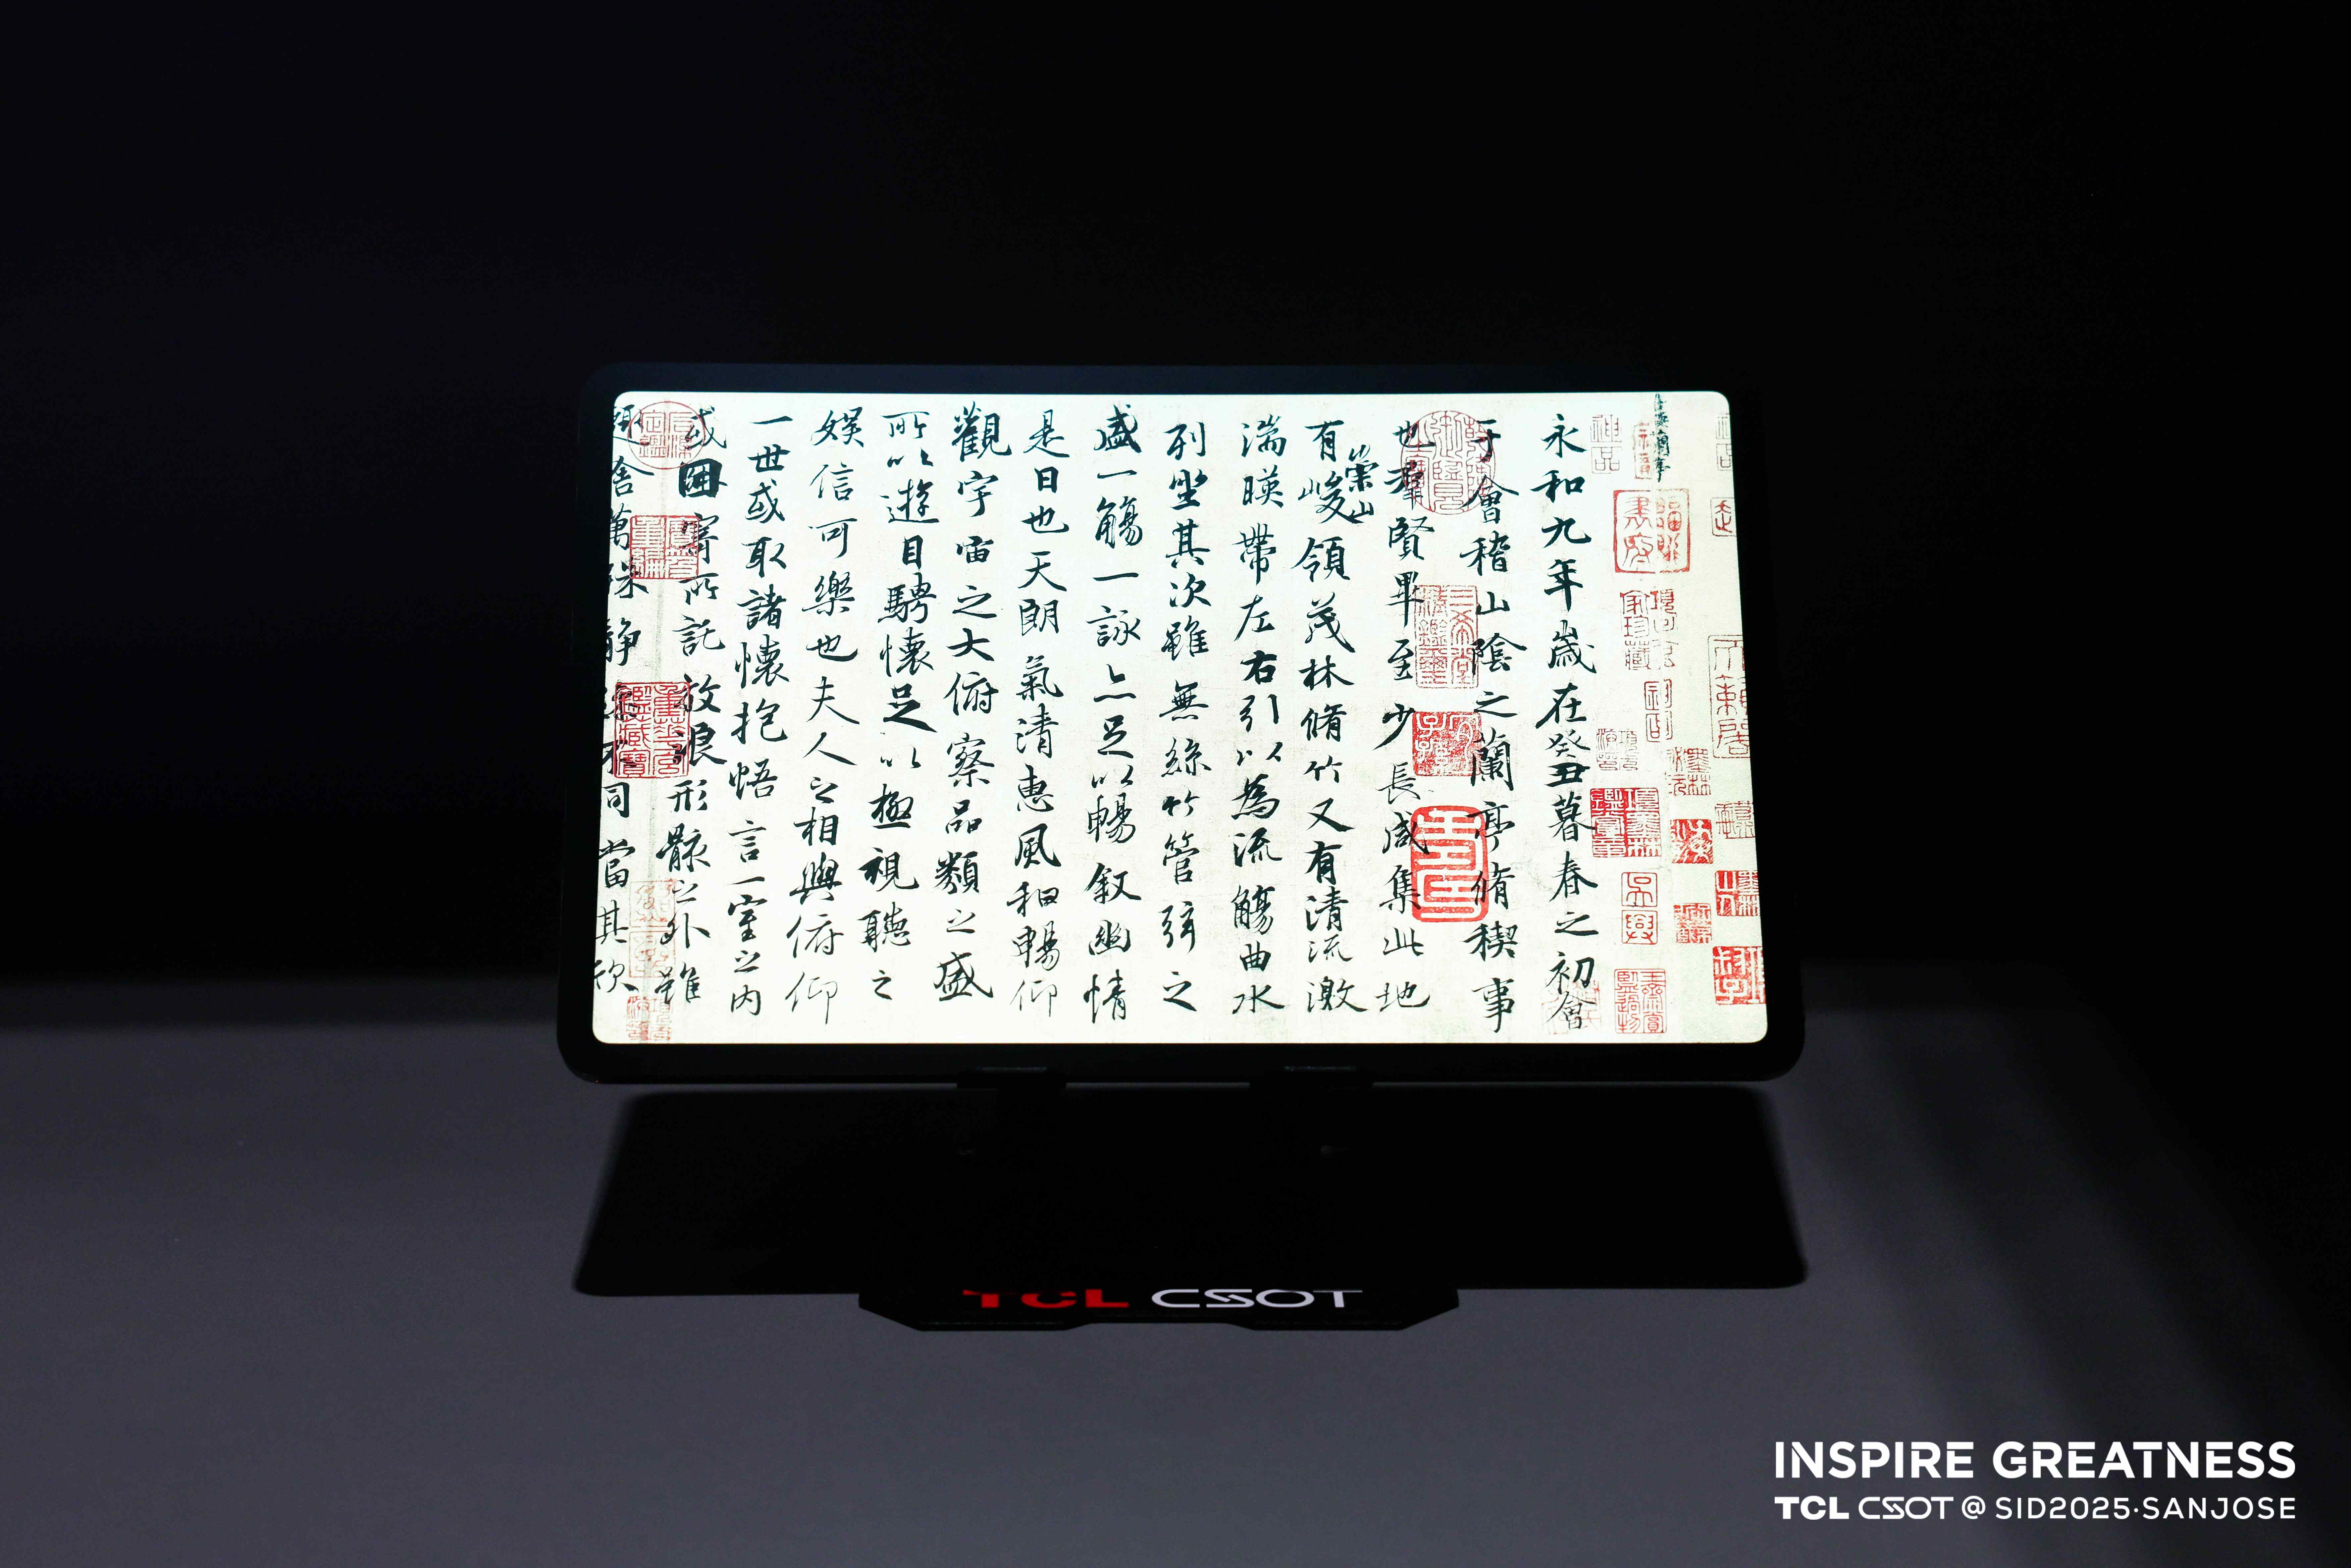 永和九年歲在癸丑暮春之初會
于會稽山陰之蘭亭脩稧事
也羣賢畢至少長咸集此地
有崇山峻領茂林脩竹又有清流激
湍暎帶左右引以為流觴曲水
列坐其次雖無絲竹管弦之
盛一觴一詠亦足以暢叙幽情
是日也天朗氣清惠風和暢仰
觀宇宙之大俯察品類之盛
所以遊目騁懷足以極視聽之
娛信可樂也夫人之相與俯仰
一世或取諸懷抱悟言一室之內
或因寄所託放浪形骸之外雖
趣舍萬殊静躁不同當其欣
神品
吳興
TCL CSOT
INSPIRE GREATNESS
TCL CSOT @ SID2025·SANJOSE